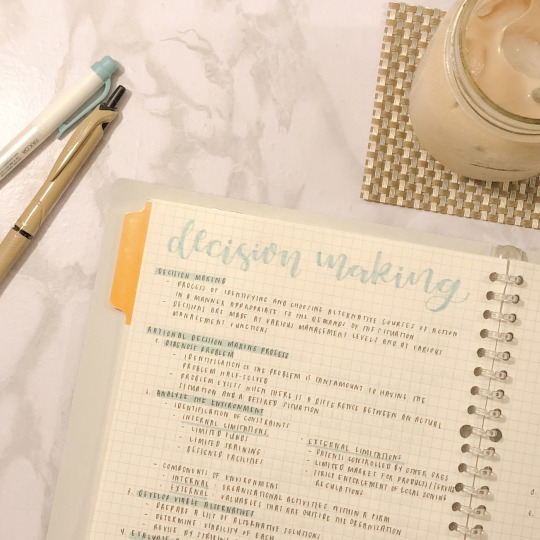 decision making
DECISION MAKING
- PROCESS OF IDENTIFYING AND CHOOSING ALTERNATIVE COURSES OF ACTION
IN A MANNER APPROPRIATE TO THE DEMANDS OF THE SITUATION
- DECISIONS ARE MADE AT VARIOUS MANAGEMENT LEVELS AND AT VARIOUS
MANAGEMENT FUNCTIONS
RATIONAL DECISION MAKING PROCESS
1. DIAGNOSE PROBLEM
- IDENTIFICATION OF THE PROBLEM IS TANTAMOUNT TO HAVING THE
PROBLEM HALF-SOLVED
- PROBLEM EXISTS WHEN THERE IS A DIFFERENCE BETWEEN AN ACTUAL
SITUATION AND A DESIRED SITUATION
2. ANALYZE THE ENVIRONMENT
- IDENTIFICATION OF CONSTRAINTS
INTERNAL LIMITATIONS
- LIMITED FUNDS
- LIMITED TRAINING
- DESIGNED FACILITIES
EXTERNAL LIMITATIONS
- PATENTS CONTROLLED BY OTHER ORGS
- LIMITED MARKET FOR PRODUCTS/
- STRICT ENFORCEMENT OF LOCAL ZONING
REGULATIONS
- COMPONENTS OF ENVIRONMENT
- INTERNAL: ORGANIZATIONAL ACTIVITIES WITHIN A FIRM
- EXTERNAL: VARIABLES THAT ARE OUTSIDE THE ORGANIZATION
3. DEVELOP VIABLE ALTERNATIVES
- PREPARE A LIST OF ALTERNATIVE SOLUTIONS
- DETERMINE VIABILITY OF EACH
- REVISE BY STRIKING
4. EVALUATE